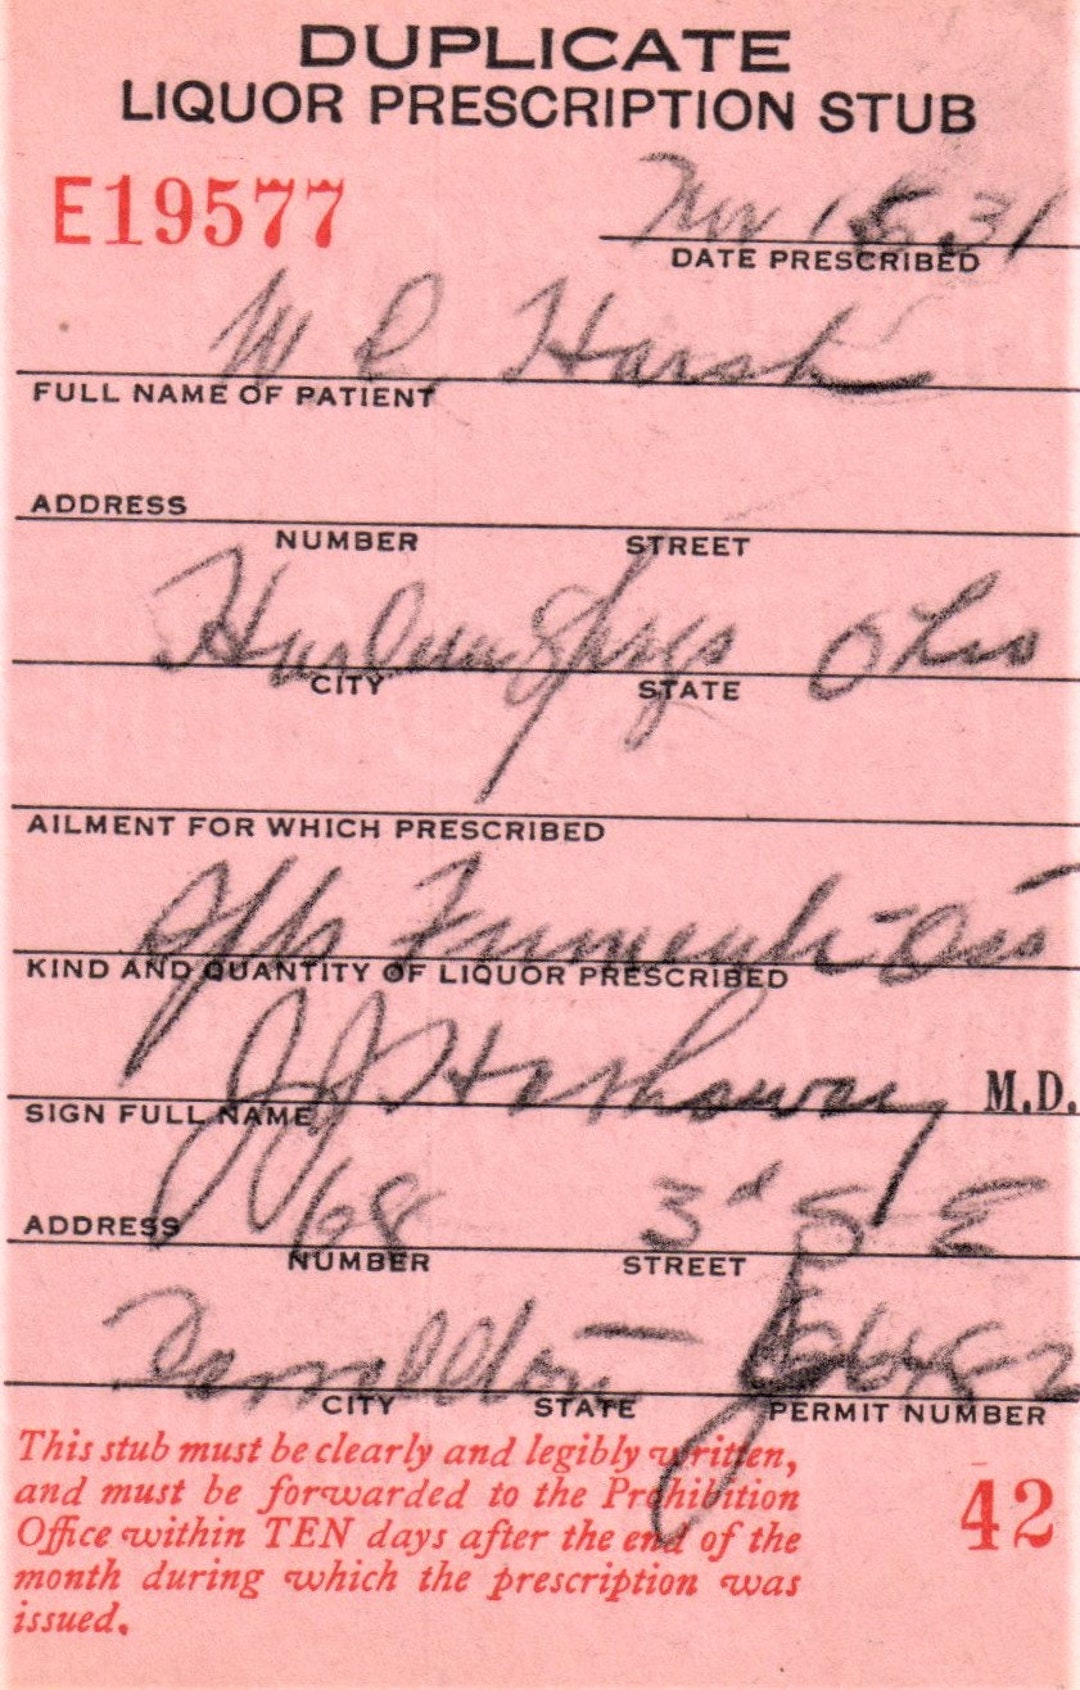 DUPLICATE
LIQUOR PRESCRIPTION STUB
E19577
Nov 15, 31
DATE PRESCRIBED
W R Harsh
FULL NAME OF PATIENT
ADDRESS
NUMBER STREET
Ohio
CITY STATE
AILMENT FOR WHICH PRESCRIBED
Frumenti
KIND AND QUANTITY OF LIQUOR PRESCRIBED
JJ Hathaway M.D.
SIGN FULL NAME
ADDRESS 168 3d S E
NUMBER STREET
CITY STATE PERMIT NUMBER
This stub must be clearly and legibly written,
and must be forwarded to the Prohibition
Office within TEN days after the end of the
month during which the prescription was
issued.
42